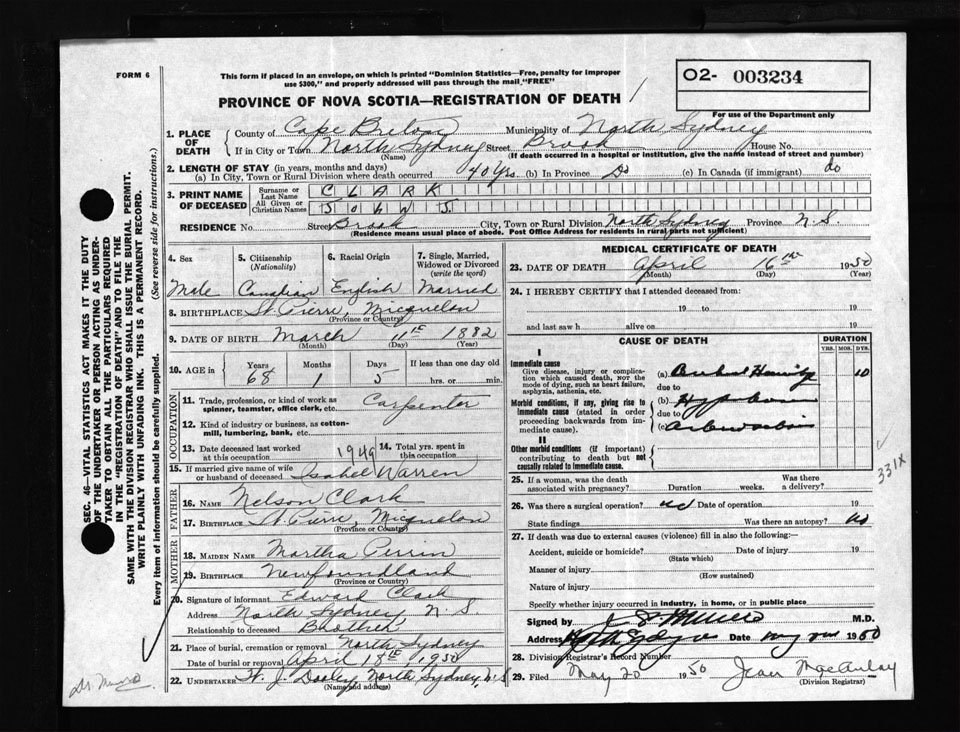 FORM 6
This form if placed in an envelope, on which is printed "Dominion Statistics—Free, penalty for improper
use $300," and properly addressed will pass through the mail "FREE"
O2- 003234
PROVINCE OF NOVA SCOTIA—REGISTRATION OF DEATH
For use of the Department only
1. PLACE OF DEATH
County of Cape Breton Municipality of North Sydney
If in City or Town North Sydney Street Brook House No.
(Name) (If death occurred in a hospital or institution, give the name instead of street and number)
2. LENGTH OF STAY (in years, months and days)
(a) In City, Town or Rural Division where death occurred 40 yrs. (b) In Province Do (c) In Canada (if immigrant) do
3. PRINT NAME OF DECEASED
Surname or Last Name CLARK
All Given or Christian Names JOHN J.
RESIDENCE No. Street Brook City, Town or Rural Division North Sydney Province N.S.
(Residence means usual place of abode. Post Office Address for residents in rural parts not sufficient)
4. Sex
Male
5. Citizenship (Nationality)
Canadian
6. Racial Origin
English
7. Single, Married, Widowed or Divorced (write the word)
Married
8. BIRTHPLACE St. Pierre, Micquelon
(Province or Country)
9. DATE OF BIRTH March 11th 1882
(Month) (Day) (Year)
10. AGE in Years Months Days If less than one day old
68 1 5 hrs. or min.
OCCUPATION
11. Trade, profession, or kind of work as spinner, teamster, office clerk, etc. Carpenter
12. Kind of industry or business, as cotton-mill, lumbering, bank, etc.
13. Date deceased last worked at this occupation 1949
14. Total yrs. spent in this occupation
15. If married give name of wife or husband of deceased Isabel Warren
FATHER
16. NAME Nelson Clark
17. BIRTHPLACE St. Pierre, Micquelon
(Province or Country)
MOTHER
18. MAIDEN NAME Martha Perrin
19. BIRTHPLACE Newfoundland
(Province or Country)
20. Signature of informant Edward Clark
Address North Sydney, N.S.
Relationship to deceased Brother
21. Place of burial, cremation or removal North Sydney
Date of burial or removal April 18th 1950
22. UNDERTAKER J. Dooley, North Sydney, N.S
(Name and address)
MEDICAL CERTIFICATE OF DEATH
23. DATE OF DEATH April 16th 1950
(Month) (Day) (Year)
24. I HEREBY CERTIFY that I attended deceased from:
19 to 19
and last saw h alive on 19
CAUSE OF DEATH
DURATION
YRS. MOS. DYS.
I
Immediate cause
Give disease, injury or complication which caused death, not the mode of dying, such as heart failure, asphyxia, asthenia, etc.
(a) 10
due to
Morbid conditions, if any, giving rise to immediate cause (stated in order proceeding backwards from immediate cause).
(b)
due to
(c)
II
Other morbid conditions (if important) contributing to death but not causally related to immediate cause.
331X
25. If a woman, was the death associated with pregnancy? Duration weeks. Was there a delivery?
26. Was there a surgical operation? no Date of operation 19
State findings Was there an autopsy? no
27. If death was due to external causes (violence) fill in also the following:—
Accident, suicide or homicide? Date of injury 19
(State which)
Manner of injury
(How sustained)
Nature of injury
Specify whether injury occurred in industry, in home, or in public place
Signed by Munro M.D.
Address Date 1950
28. Division Registrar's Record Number
29. Filed May 20 1950 Jean MacAulay
(Division Registrar)
SEC. 46—VITAL STATISTICS ACT MAKES IT THE DUTY
OF THE UNDERTAKER OR PERSON ACTING AS UNDER-
TAKER TO OBTAIN ALL THE PARTICULARS REQUIRED
IN THE "REGISTRATION OF DEATH" AND TO FILE THE
SAME WITH THE DIVISION REGISTRAR WHO SHALL ISSUE THE BURIAL PERMIT.
WRITE PLAINLY WITH UNFADING INK. THIS IS A PERMANENT RECORD.
Every item of information should be carefully supplied. (See reverse side for instructions.)
Dr. Munro